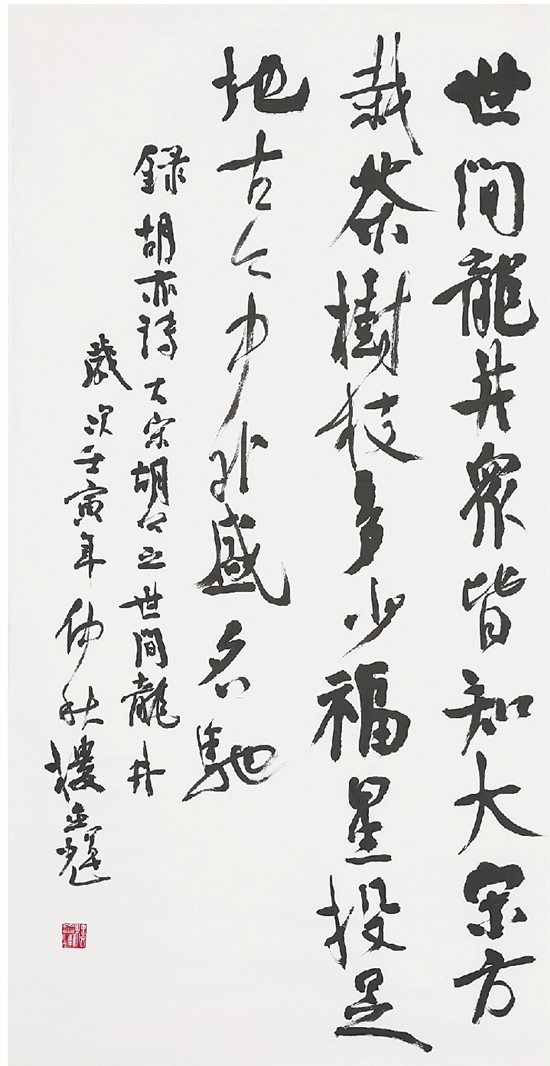 世間龍井衆皆知大宋方
栽茶樹枝多少福星投足
地古今中外盛名馳
録胡亦詩大宋胡公与世間龍井
歲次壬寅年仲秋樓立輝